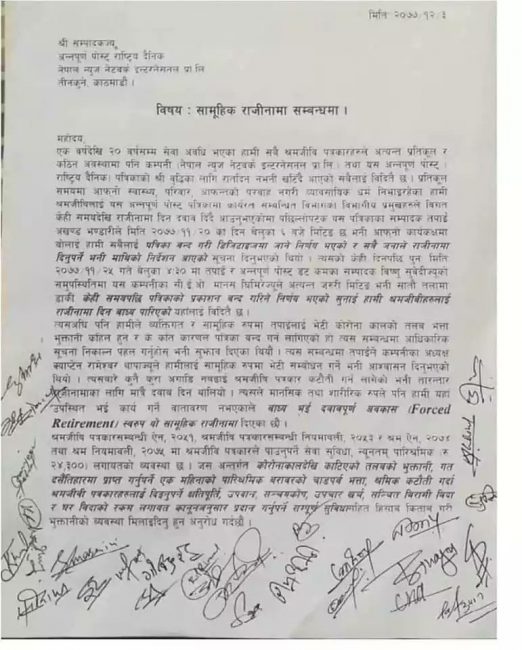 मिति २०७७।१२।३
श्री सम्पादकज्यू,
अन्नपूर्ण पोस्ट् राष्ट्रिय दैनिक
नेपाल न्यूज नेटवर्क इन्टरनेसनल प्रा.लि
तीनकुने, काठमाडौं ।
विषय : सामूहिक राजीनामा सम्बन्धमा ।
महोदय,
एक वर्षदेखि २० वर्षसम्म सेवा अवधि भएका हामी सबै श्रमजीवि पत्रकारहरुले अत्यन्त प्रतिकूल र
कठिन अवस्थामा पनि कम्पनी (नेपाल न्यूज नेटवर्क इन्टरनेसनल प्रा.लि) तथा यस अन्नपूर्ण पोस्ट्
राष्ट्रिय दैनिक) पत्रिकाको श्री वृद्धिका लागि रातदिन नभनी खटिँदै आएको सबैलाई विदितै छ । प्रतिकूल
समयमा आफ्नो स्वास्थ्य, परिवार, आफन्तको परवाह नगरी व्यावसायिक धर्म निभाइरहेका हामी
श्रमजीविलाई यस अन्नपूर्ण पोस्ट् पत्रिकामा कार्यरत सम्बन्धित विभागका विभागीय प्रमुखहरुले विगत
केही समयदेखि राजीनामा दिन दबाव दिँदै आउनुभएकोमा पछिल्लोपटक यस पत्रिकाका सम्पादक तपाईं
अखण्ड भण्डारीले मिति २०७७।११।२० का दिन बेलुका ६ बजे मिटिङ छ भनी आफ्नो कार्यकक्षमा
बोलाई हामी सबैलाई पत्रिका बन्द गरी डिजिटाइजमा जाने निर्णय भएको र सबै जनाले राजीनामा
दिनुपर्ने भनी माथिको निर्देशन आएको सूचना दिनुभएको थियो । त्यसको केही दिनपछि पुन: मिति
२०७७।११।२५ गते बेलुका ४:३० मा तपाईं र अन्नपूर्ण पोस्ट् डट कमका सम्पादक विष्णु सुवेदीज्यूको
समुपस्थितिमा यस कम्पनीका सी.ई.ओ. मानस घिमिरेज्यूले अत्यन्त जरुरी मिटिङ भनी सातौं तलामा
डाकी केही समयपछि पत्रिकाको प्रकाशन बन्द गरिने निर्णय भएको सुनाई हामी श्रमजीवीहरुलाई
राजीनामा दिन बाध्य पारिएको यहाँलाई विदितै छ ।
त्यसअघि पनि हामीले व्यक्तिगत र सामुहिक रुपमा तपाईंलाई भेटी कोरोना कालको तलब भत्ता
भुक्तानी कहिले हुन र के कति कारणले पत्रिका बन्द गर्न लागिएको हो त्यस सम्बन्धमा आधिकारिक
सूचना निकाल्न पहल गर्नुहोस् भनी सुझाव दिएका थियौं । त्यस सम्बन्धमा तपाईंले कम्पनीका अध्यक्ष
क्याप्टेन रामेश्वर थापाज्यूले हामीलाई सामूहिक रुपमा भेटी सम्बोधन गर्ने भनी आश्वासन दिनुभएको
थियो । त्यसबारे कुनै कुरा अगाडि नबढाई श्रमजीवि पत्रकार कटौती गर्न लागेको भनी तारन्तार
राजीनामाका लागि मात्रै दबाव दिन थालियो । त्यसैले मानसिक तथा शारीरिक रुपले पनि हामी यहाँ
उपस्थित भई कार्य गर्ने वातावरण नभएकाले बाध्य भई दवावपूर्ण अवकास (Forced
Retirement) स्वरुप यो सामूहिक राजीनामा दिएका छौं ।
श्रमजीवि पत्रकारसम्बन्धी ऐन, २०५१, श्रमजीवि पत्रकारसम्बन्धी नियमावली, २०५३ र श्रम ऐन, २०७४
तथा श्रम नियमावली, २०७५ मा श्रमजीवि पत्रकारले पाउनुपर्ने सेवा सुविधा, न्यूनतम् पारिश्रमिक (रु
२४,३००) लगायतको व्यवस्था छ । जस अन्तर्गत कोरोनाकालदेखि काटिएको तलवको भुक्तानी, गत
दसैंतिहारमा प्राप्त गर्नुपर्ने एक महिनाको पारिश्रमिक बराबरको चाडपर्व भत्ता, श्रमिक कटौती गर्दा
श्रमजीवी पत्रकारहरुलाई दिइनुपर्ने क्षतिपूर्ति, उपदान, सञ्चयकोष, उपचार खर्च, सञ्चित बिरामी विदा
र घर विदाको रकम लगायत कानूनअनुसार प्रदान गर्नुपर्ने सम्पूर्ण सुविधासहित हिसाब किताब गरी
भुक्तानीको व्यवस्था मिलाइदिनु हुन अनुरोध गर्दछौं ।